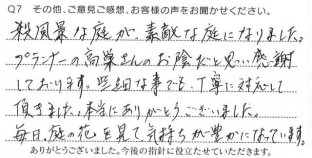 Q7 その他、ご意見ご感想、お客様の声をお聞かせください。
殺風景な庭が、素敵な庭になりました。
プランナーの高巣さんのお陰だと思い感謝
しております。些細な事でも、丁寧に対応して
頂きました。本当にありがとうございました。
毎日、庭の花を見て気持ちが豊かになっています。
ありがとうございました。今後の指針に役立たせていただきます。